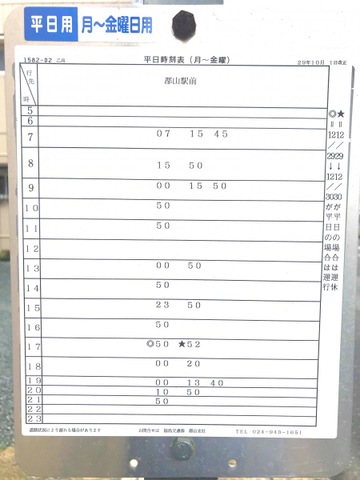 平日用 月〜金曜日用
1582-02 乙高 平日時刻表(月〜金曜) 29年10月 1日改正
行先 郡山駅前
時
5
6
7 07 15 45
8 15 50
9 00 15 50
10 50
11 50
12
13 00 50
14 50
15 23 50
16 50
17 ◎50 ★52
18 00 20
19 00 13 40
20 10 50
21 50
22
23
★=12/29→12/30が平日の場合は運休
◎=12/29→12/30が平日の場合は運行
道路状況により遅れる場合があります お問合せは 福島交通㈱ 郡山支社